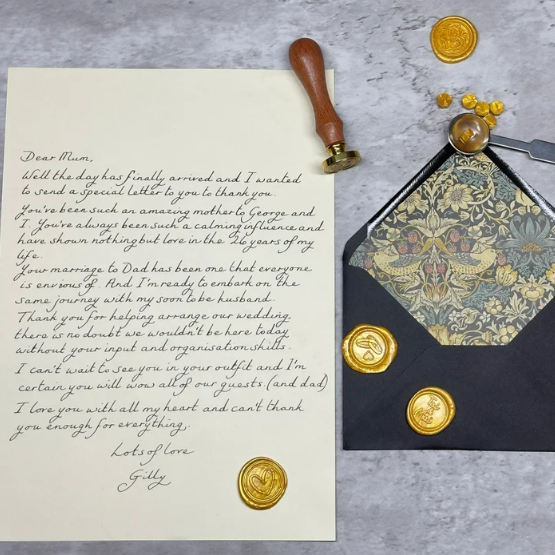 Dear Mum,
Well the day has finally arrived and I wanted
to send a special letter to you to thank you.
You've been such an amazing mother to George and
I. You've always been such a calming influence and
have shown nothing but love in the 26 years of my
life.
Your marriage to Dad has been one that everyone
is envious of. And I'm ready to embark on the
same journey with my soon to be husband.
Thank you for helping arrange our wedding
there is no doubt we wouldn't be here today
without your input and organisation skills.
I can't wait to see you in your outfit and I'm
certain you will wow all of our guests. (and dad)
I love you with all my heart and can't thank
you enough for everything,
Lots of love
Gilly